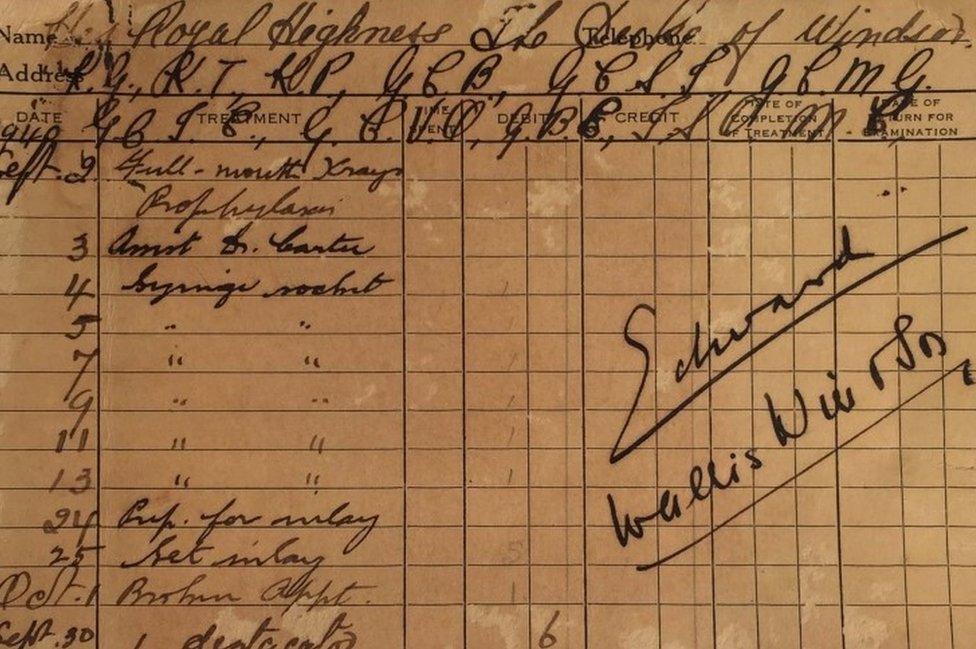 Name His Royal Highness The Duke of Windsor Telephone
Address K.G., K.T., K.P., G.C.B., G.C.S.I., G.C.M.G.
DATE TREATMENT TIME SPENT DEBIT CREDIT DATE OF COMPLETION OF TREATMENT DATE OF RETURN FOR EXAMINATION
1940 G.C.I.E., G.C.V.O., G.B.E., I.S.O., M.
Sept. 2 Full-mouth Xrays
Prophylaxis
3 Dr. Carter
4 Syringe socket
5 " "
7 " "
9 " "
11 " "
13 " "
24 Prep. for inlay
25 Set inlay
Oct. 1 Broken Appt.
Sept. 30 1 6
Edward
Wallis Windsor